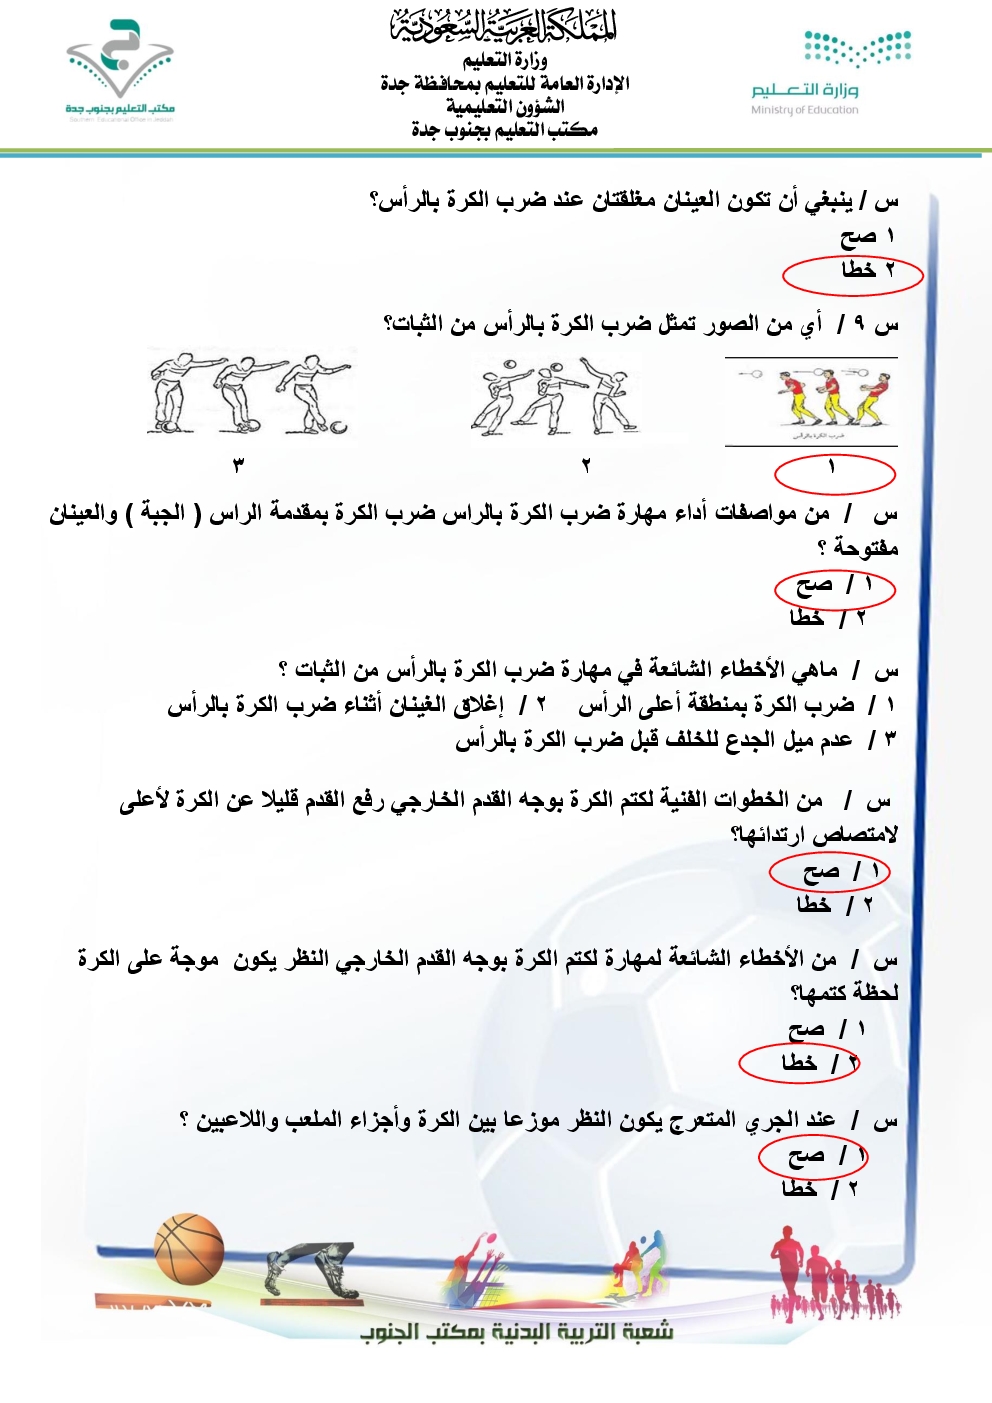 المملكة العربية السعودية
وزارة التعليم
الإدارة العامة للتعليم بمحافظة جدة
الشؤون التعليمية
مكتب التعليم بجنوب جدة
وزارة التعليم
Ministry of Education
مكتب التعليم بجنوب جدة
س / ينبغي أن تكون العينان مغلقتان عند ضرب الكرة بالرأس؟
١ صح
٢ خطا
س ٩ / أي من الصور تمثل ضرب الكرة بالرأس من الثبات؟
ضرب الكرة بالرأس
١ ٢ ٣
س / من مواصفات أداء مهارة ضرب الكرة بالراس ضرب الكرة بمقدمة الراس ( الجبة ) والعينان
مفتوحة ؟
١ / صح
٢ / خطا
س / ماهي الأخطاء الشائعة في مهارة ضرب الكرة بالرأس من الثبات ؟
١ / ضرب الكرة بمنطقة أعلى الرأس ٢ / إغلاق الغينان أثناء ضرب الكرة بالرأس
٣ / عدم ميل الجدع للخلف قبل ضرب الكرة بالرأس
س / من الخطوات الفنية لكتم الكرة بوجه القدم الخارجي رفع القدم قليلا عن الكرة لأعلى
لامتصاص ارتدائها؟
١ / صح
٢ / خطا
س / من الأخطاء الشائعة لمهارة لكتم الكرة بوجه القدم الخارجي النظر يكون موجة على الكرة
لحظة كتمها؟
١ / صح
٢ / خطا
س / عند الجري المتعرج يكون النظر موزعا بين الكرة وأجزاء الملعب واللاعبين ؟
١ / صح
٢ / خطا
شعبة التربية البدنية بمكتب الجنوب